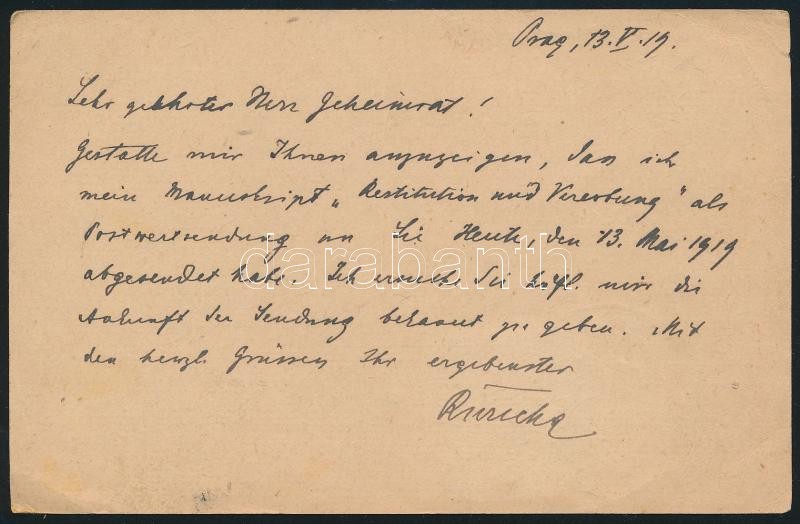 Prag, 13.V.19.
Sehr geehrter Herr Geheimrat!
Gestatte mir Ihnen anzuzeigen, dass ich
mein Manuskript „Restitution und Vererbung" als
Postwertsendung an Sie Heute, den 13. Mai 1919
abgesendet habe. Ich ersuche Sie höfl. mir die
Ankunft der Sendung bekannt zu geben. Mit
den herzl. Grüssen Ihr ergebenster
Růžička
darabanth